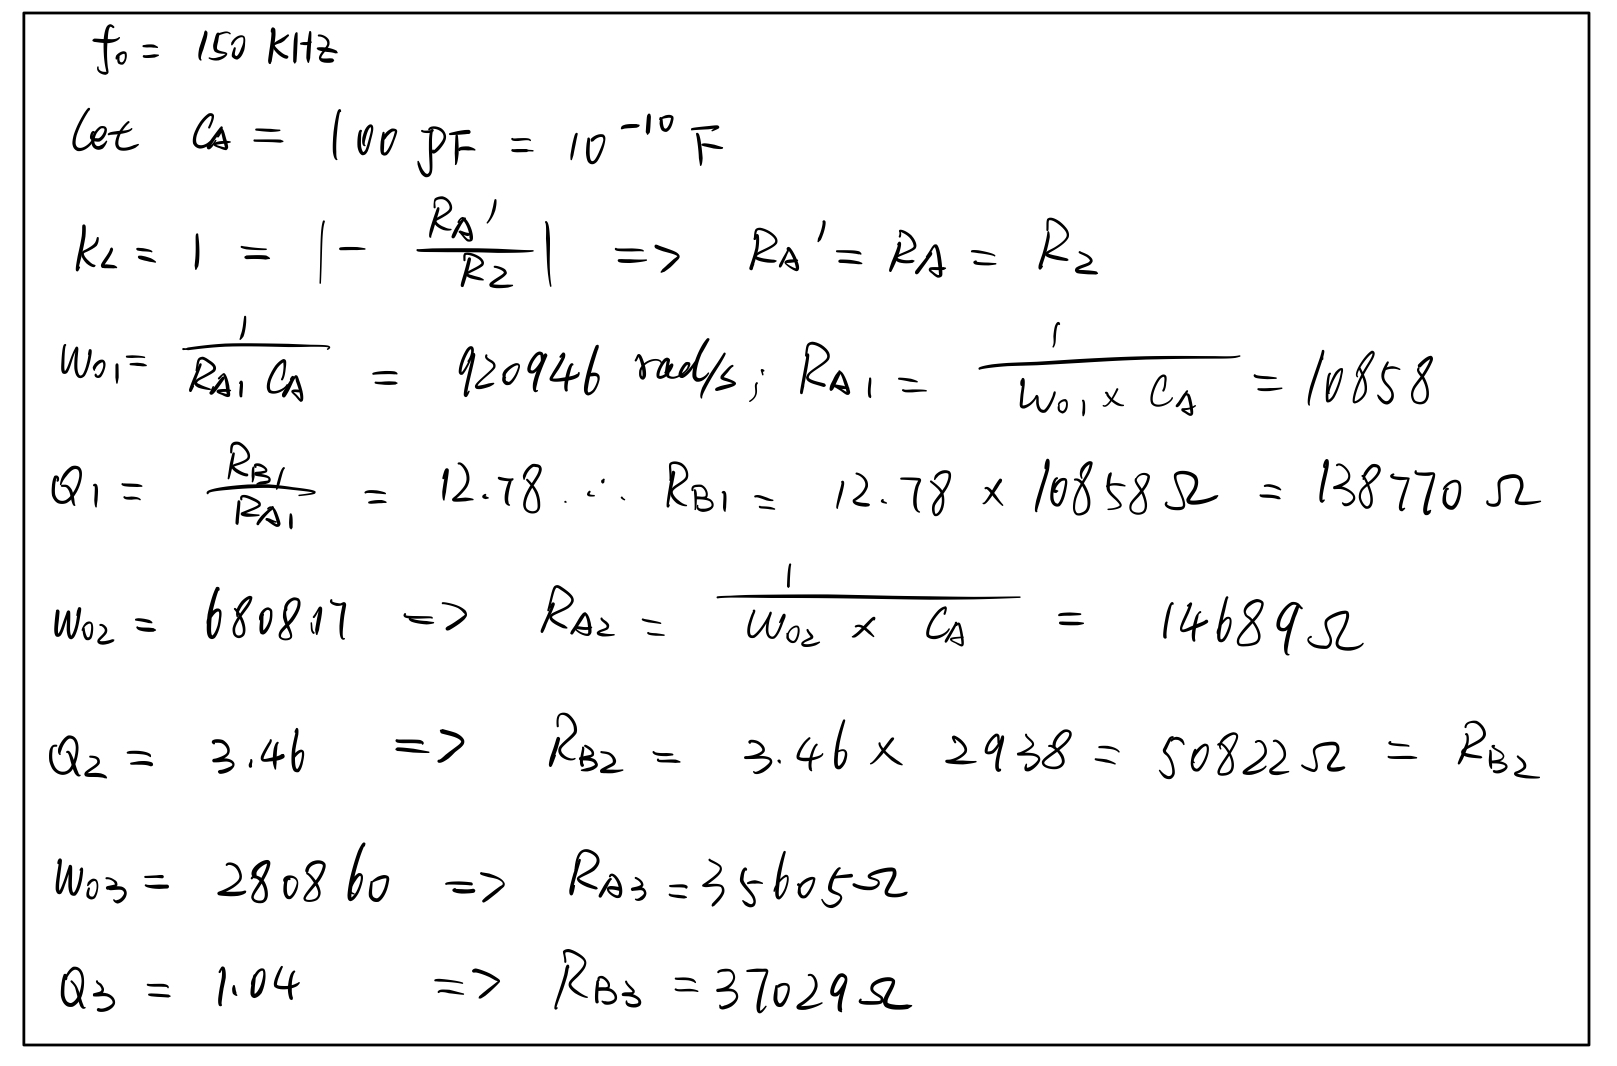 f₀ = 150 KHz
Let CA = 100 pF = 10⁻¹⁰ F
KL = 1 = |- RA'/R2| => RA' = RA = R2
W01 = 1/(RA1 CA) = 920946 rad/s; RA1 = 1/(W01 × CA) = 10858
Q1 = RB1/RA1 = 12.78 ∴ RB1 = 12.78 × 10858 Ω = 138770 Ω
W02 = 680817 => RA2 = 1/(W02 × CA) = 14689 Ω
Q2 = 3.46 => RB2 = 3.46 × 2938 = 50822 Ω = RB2
W03 = 280860 => RA3 = 35605 Ω
Q3 = 1.04 => RB3 = 37029 Ω